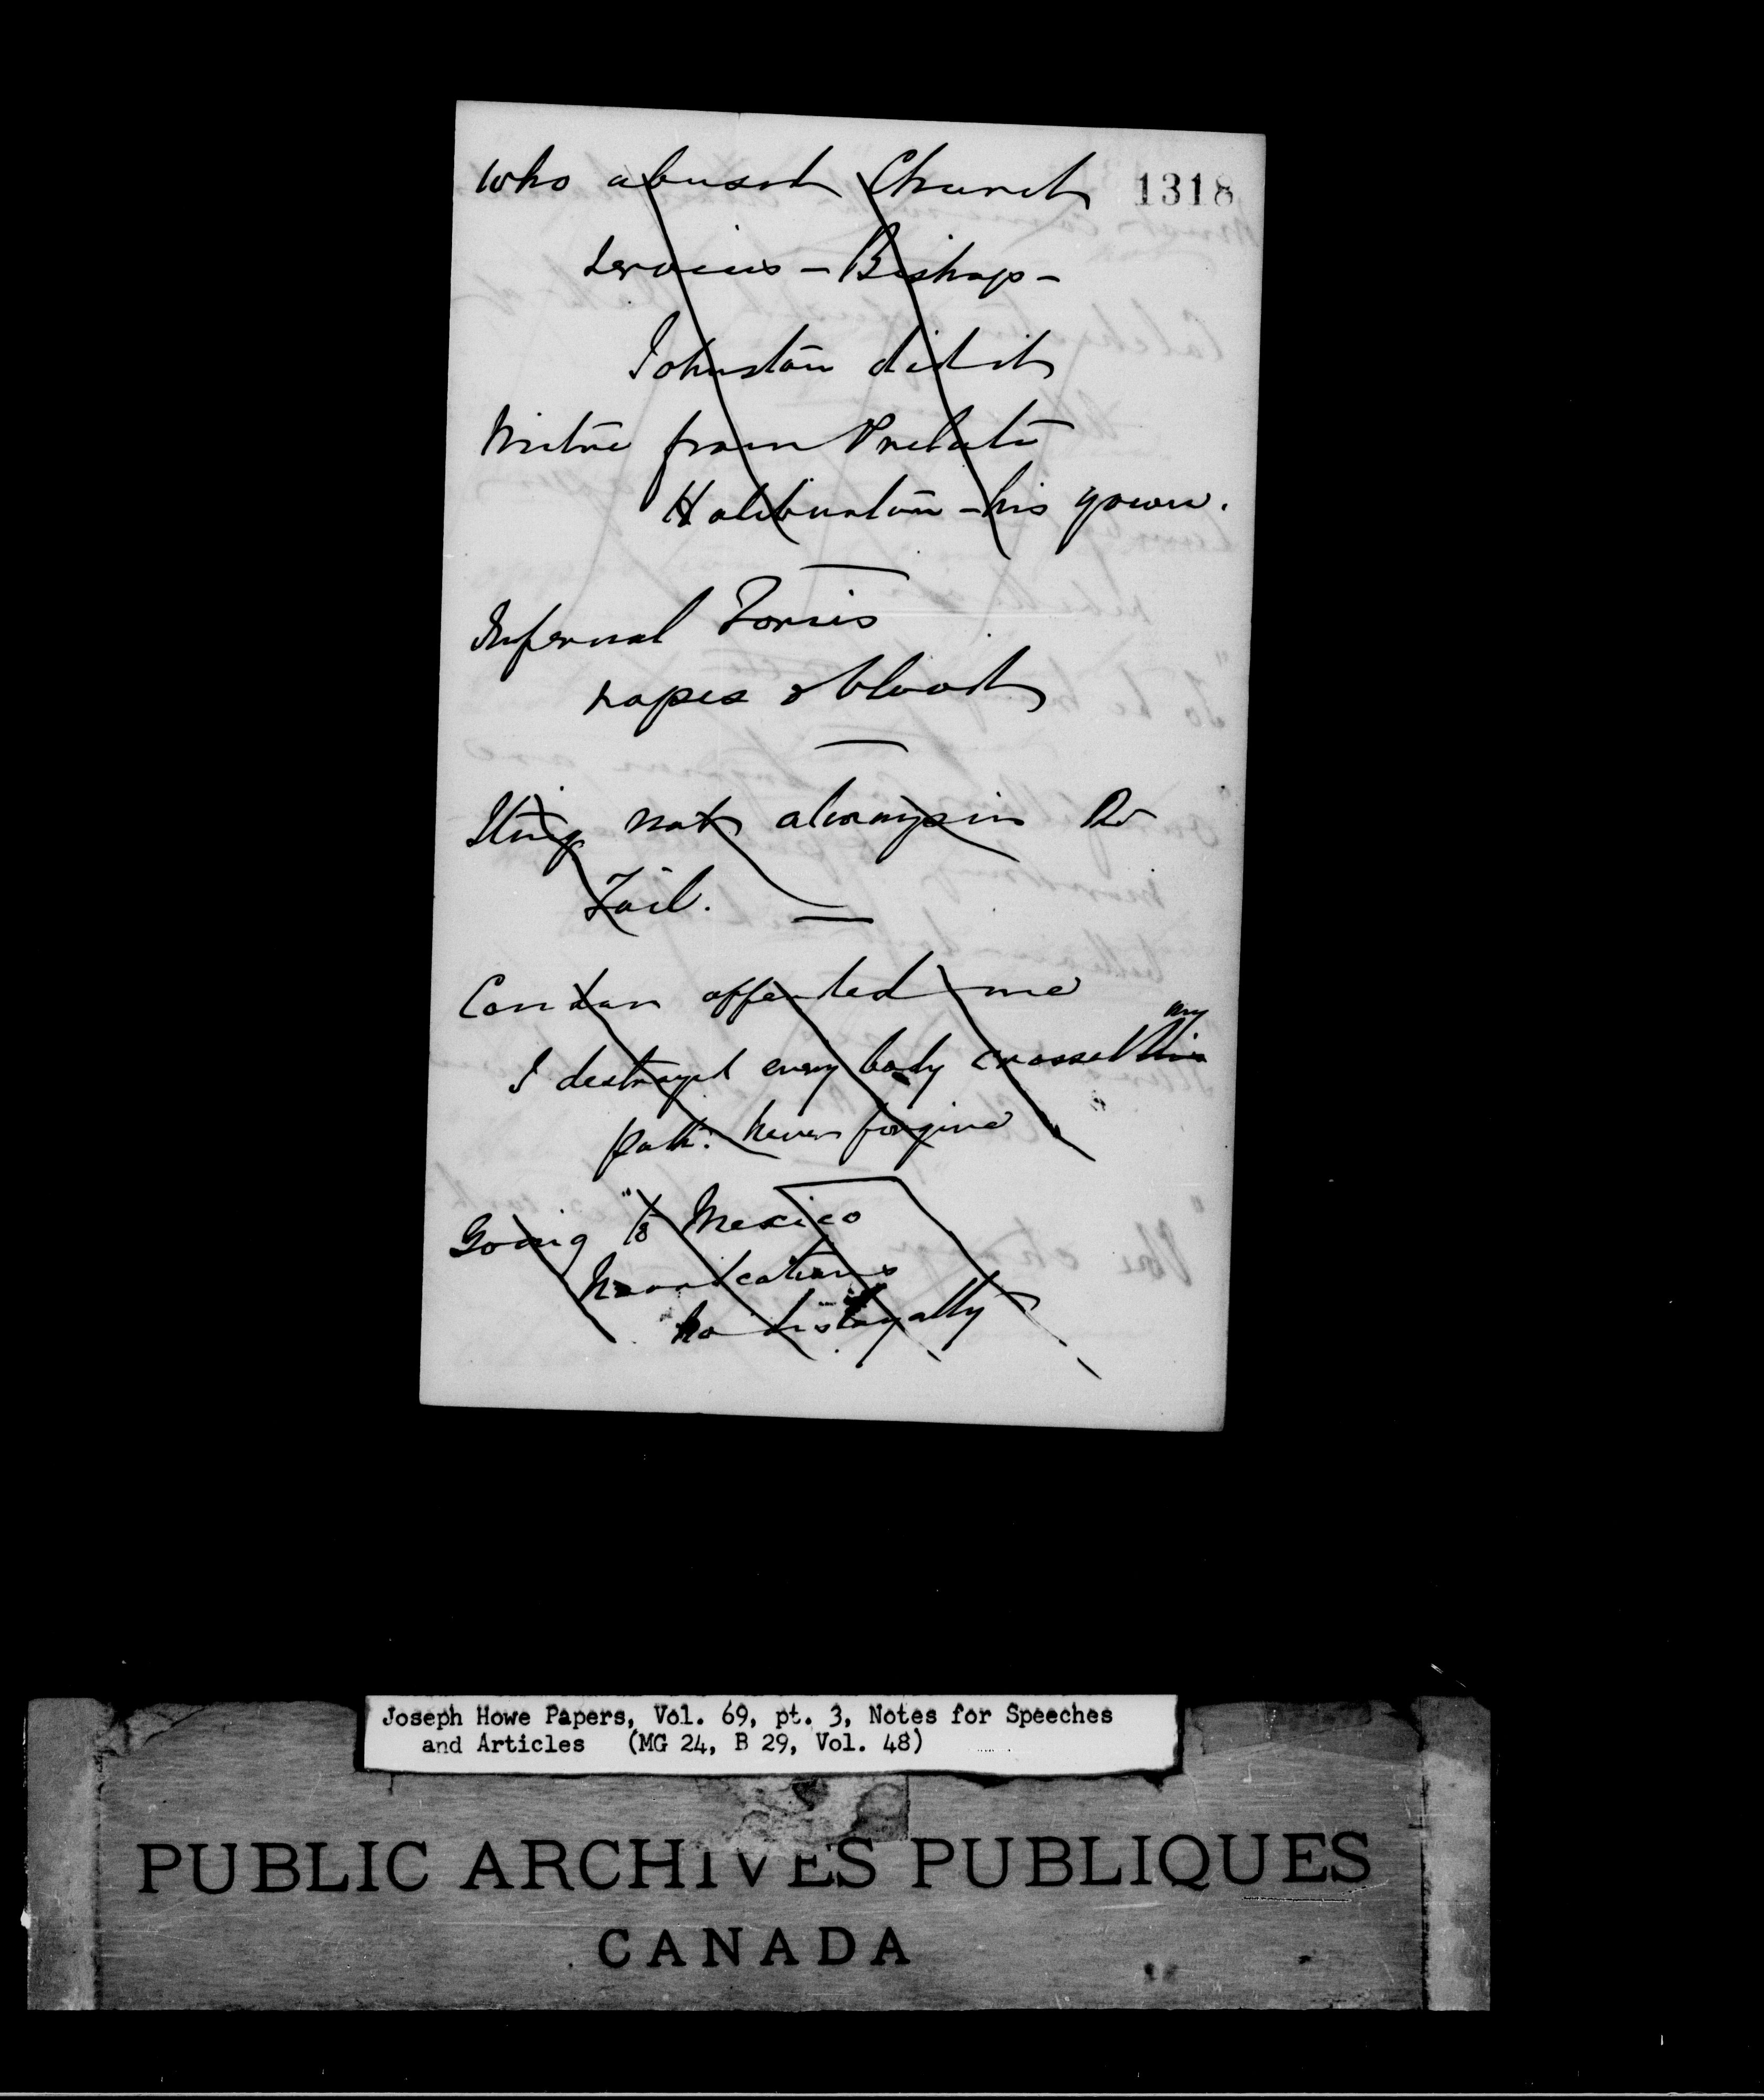 who abused Church 1318
services – Bishop –
Johnston did it
Mitre from Prelate
Haliburton – his gown.
Infernal Tories
ropes & blood
Sting not always in the
Tail.
Condon offended me
I destroyed every body crossed this my
path. Never forgive
Going "to Mexico
no disloyalty
Joseph Howe Papers, Vol. 69, pt. 3, Notes for Speeches
and Articles (MG 24, B 29, Vol. 48)
PUBLIC ARCHIVES PUBLIQUES
CANADA